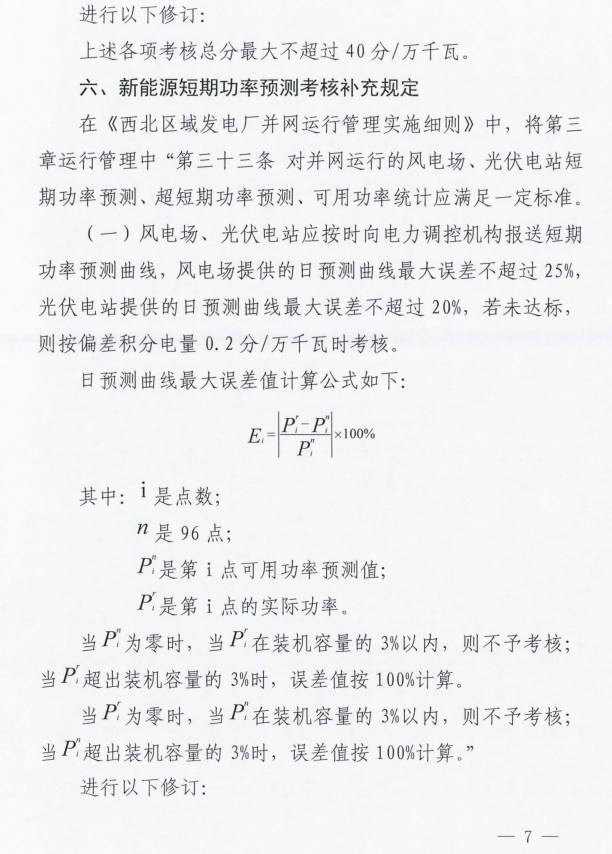 进行以下修订：
上述各项考核总分最大不超过 40 分/万千瓦。
六、新能源短期功率预测考核补充规定
在《西北区域发电厂并网运行管理实施细则》中，将第三
章运行管理中“第三十三条 对并网运行的风电场、光伏电站短
期功率预测、超短期功率预测、可用功率统计应满足一定标准。
（一）风电场、光伏电站应按时向电力调控机构报送短期
功率预测曲线，风电场提供的日预测曲线最大误差不超过 25%，
光伏电站提供的日预测曲线最大误差不超过 20%，若未达标，
则按偏差积分电量 0.2 分/万千瓦时考核。
日预测曲线最大误差值计算公式如下：
$E_i=\left|\frac{P_i^r-P_i^n}{P_i^n}\right|\times100\%$
其中：i 是点数；
n 是 96 点；
$P_i^n$是第 i 点可用功率预测值；
$P_i^r$是第 i 点的实际功率。
当$P_i^n$为零时，当$P_i^r$在装机容量的 3%以内，则不予考核；
当$P_i^r$超出装机容量的 3%时，误差值按 100%计算。
当$P_i^r$为零时，当$P_i^n$在装机容量的 3%以内，则不予考核；
当$P_i^n$超出装机容量的 3%时，误差值按 100%计算。”
进行以下修订：
— 7 —